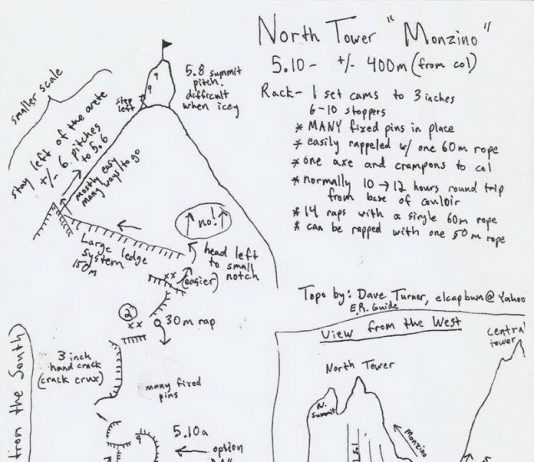 North Tower "Monzino"
5.10- +/- 400m (from col)
Rack- 1 set cams to 3 inches
6-10 stoppers
* MANY fixed pins in place
* easily rappeled w/ one 60m rope
* one axe and crampons to col
* normally 10 → 12 hours round trip
from base of couloir
* 14 raps with a single 60m rope
* can be rapped with one 50m rope
smaller scale
5.8 summit
pitch,
difficult
when icey
step
left
stay left of the arete
+/- 6 pitches
to 5.6
mostly easy
many ways to go
no!
Large ledge
system
150m
head left
to small
notch
(easier)
2
30m rap
3 inch
hand crack
(crack crux)
many fixed
pins
5.10a
option
from the South
Topo by: Dave Turner, elcapbum@Yahoo
E.R. Guide
View from the West
Central
tower
North Tower
N.
Summit
Monzino